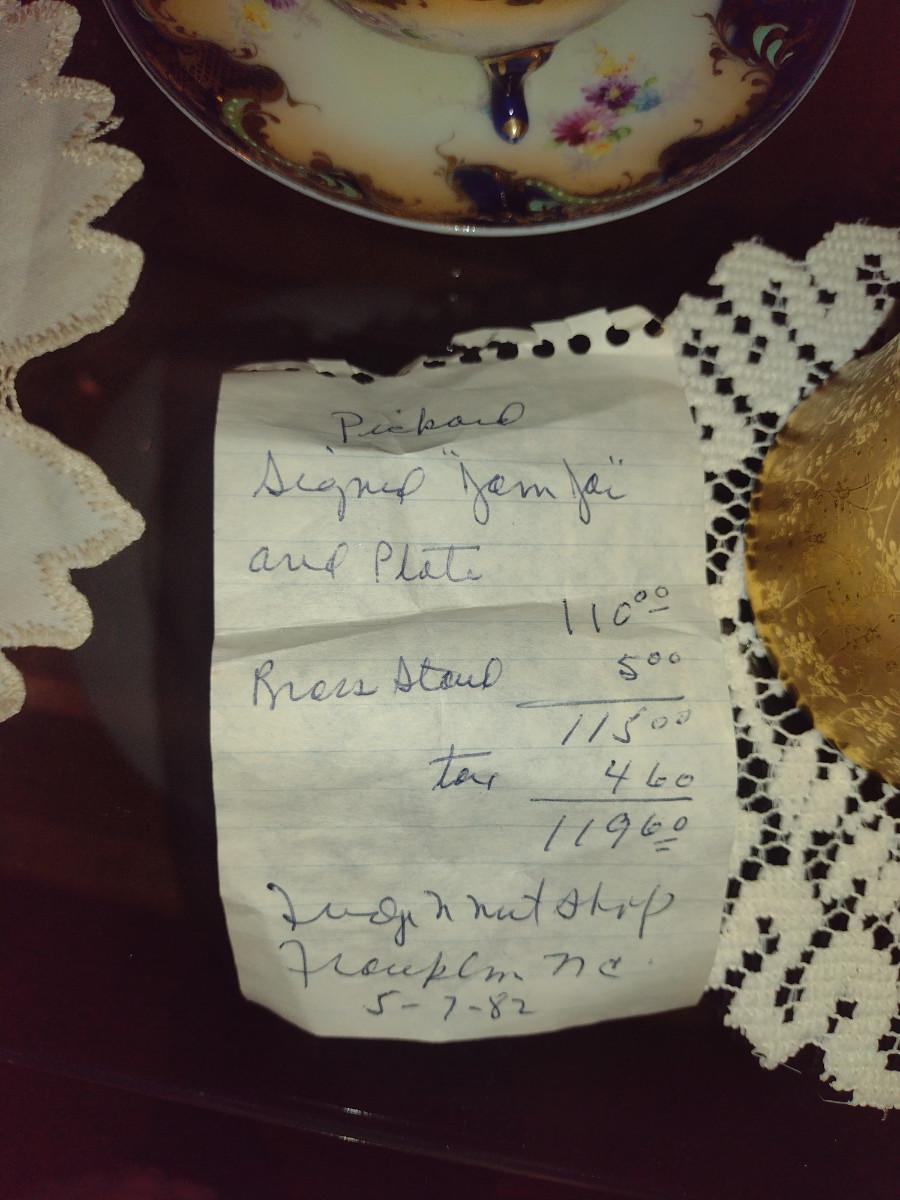 Pickard
Signed "Jam Jar"
and Plate
110.00
Brass Stand 5.00
115.00
tax 4 60
119 60
Fudge N Nut Shop
Franklin NC.
5-7-82